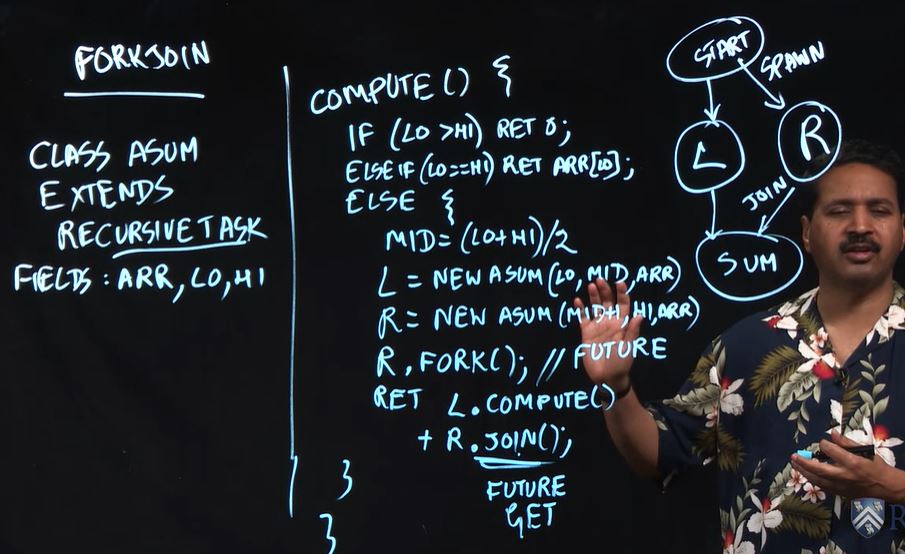 FORKJOIN
CLASS ASUM
EXTENDS
RECURSIVETASK
FIELDS : ARR, LO, HI
COMPUTE() {
IF (LO >HI) RET 0;
ELSEIF (LO==HI) RET ARR[LO];
ELSE {
MID= (LO+HI)/2
L = NEW ASUM(LO, MID, ARR)
R = NEW ASUM (MID+1, HI, ARR)
R.FORK(); // FUTURE
RET L.COMPUTE()
+ R.JOIN();
FUTURE
GET
}
}
START
SPAWN
L
R
JOIN
SUM
R